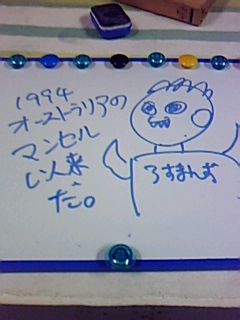 1994
オーストラリアの
マンセル
以来
だ。
ろすまんず